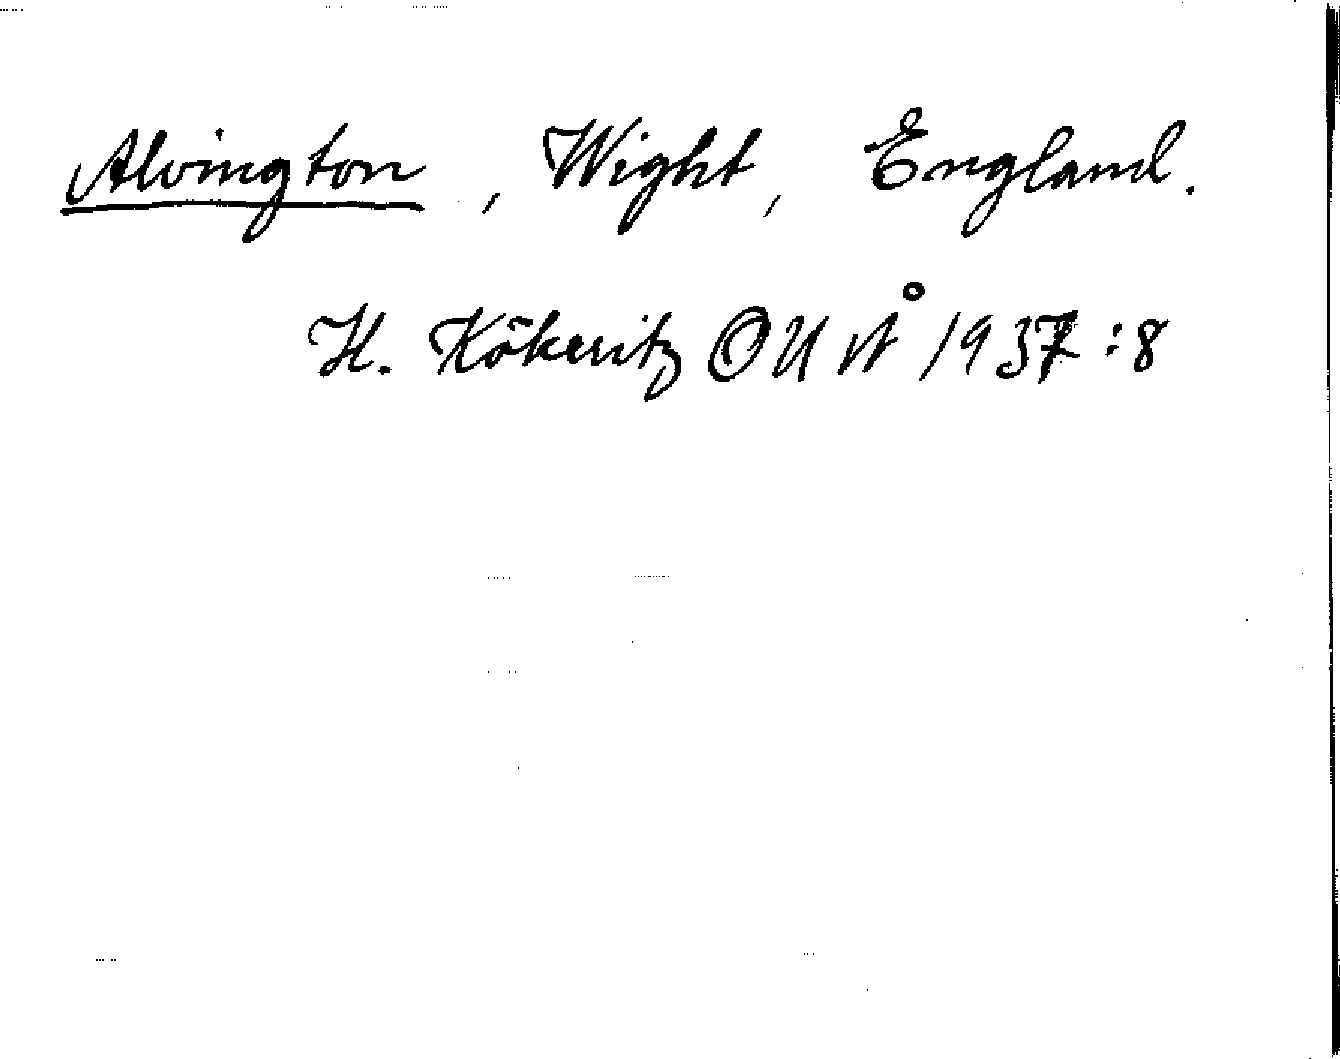 Alvington, Wight, England.
H. Kökeritz OUÅ 1937:8